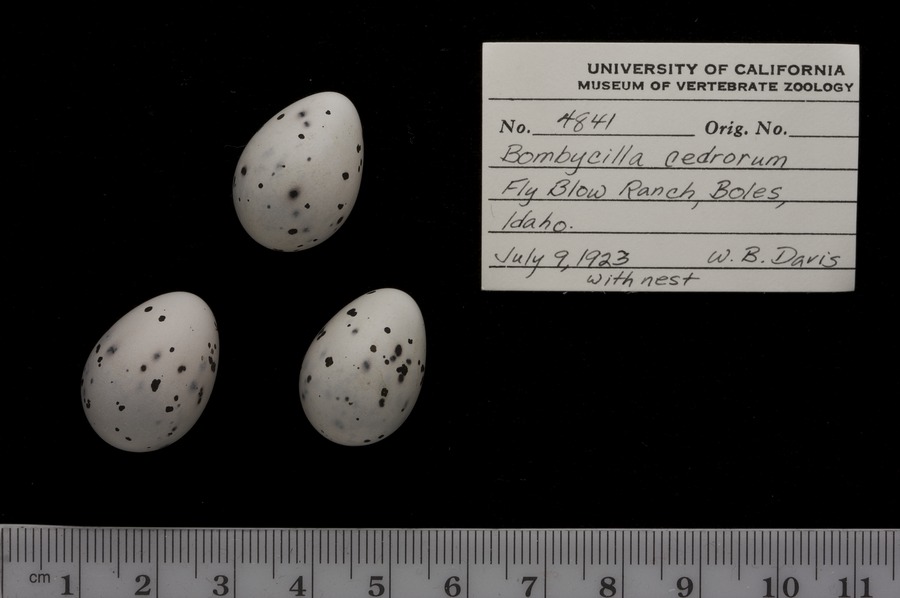 UNIVERSITY OF CALIFORNIA
MUSEUM OF VERTEBRATE ZOOLOGY
No. 4841 Orig. No.
Bombycilla cedrorum
Fly Blow Ranch, Boles,
Idaho.
July 9, 1923 W. B. Davis
with nest
cm 1 2 3 4 5 6 7 8 9 10 11